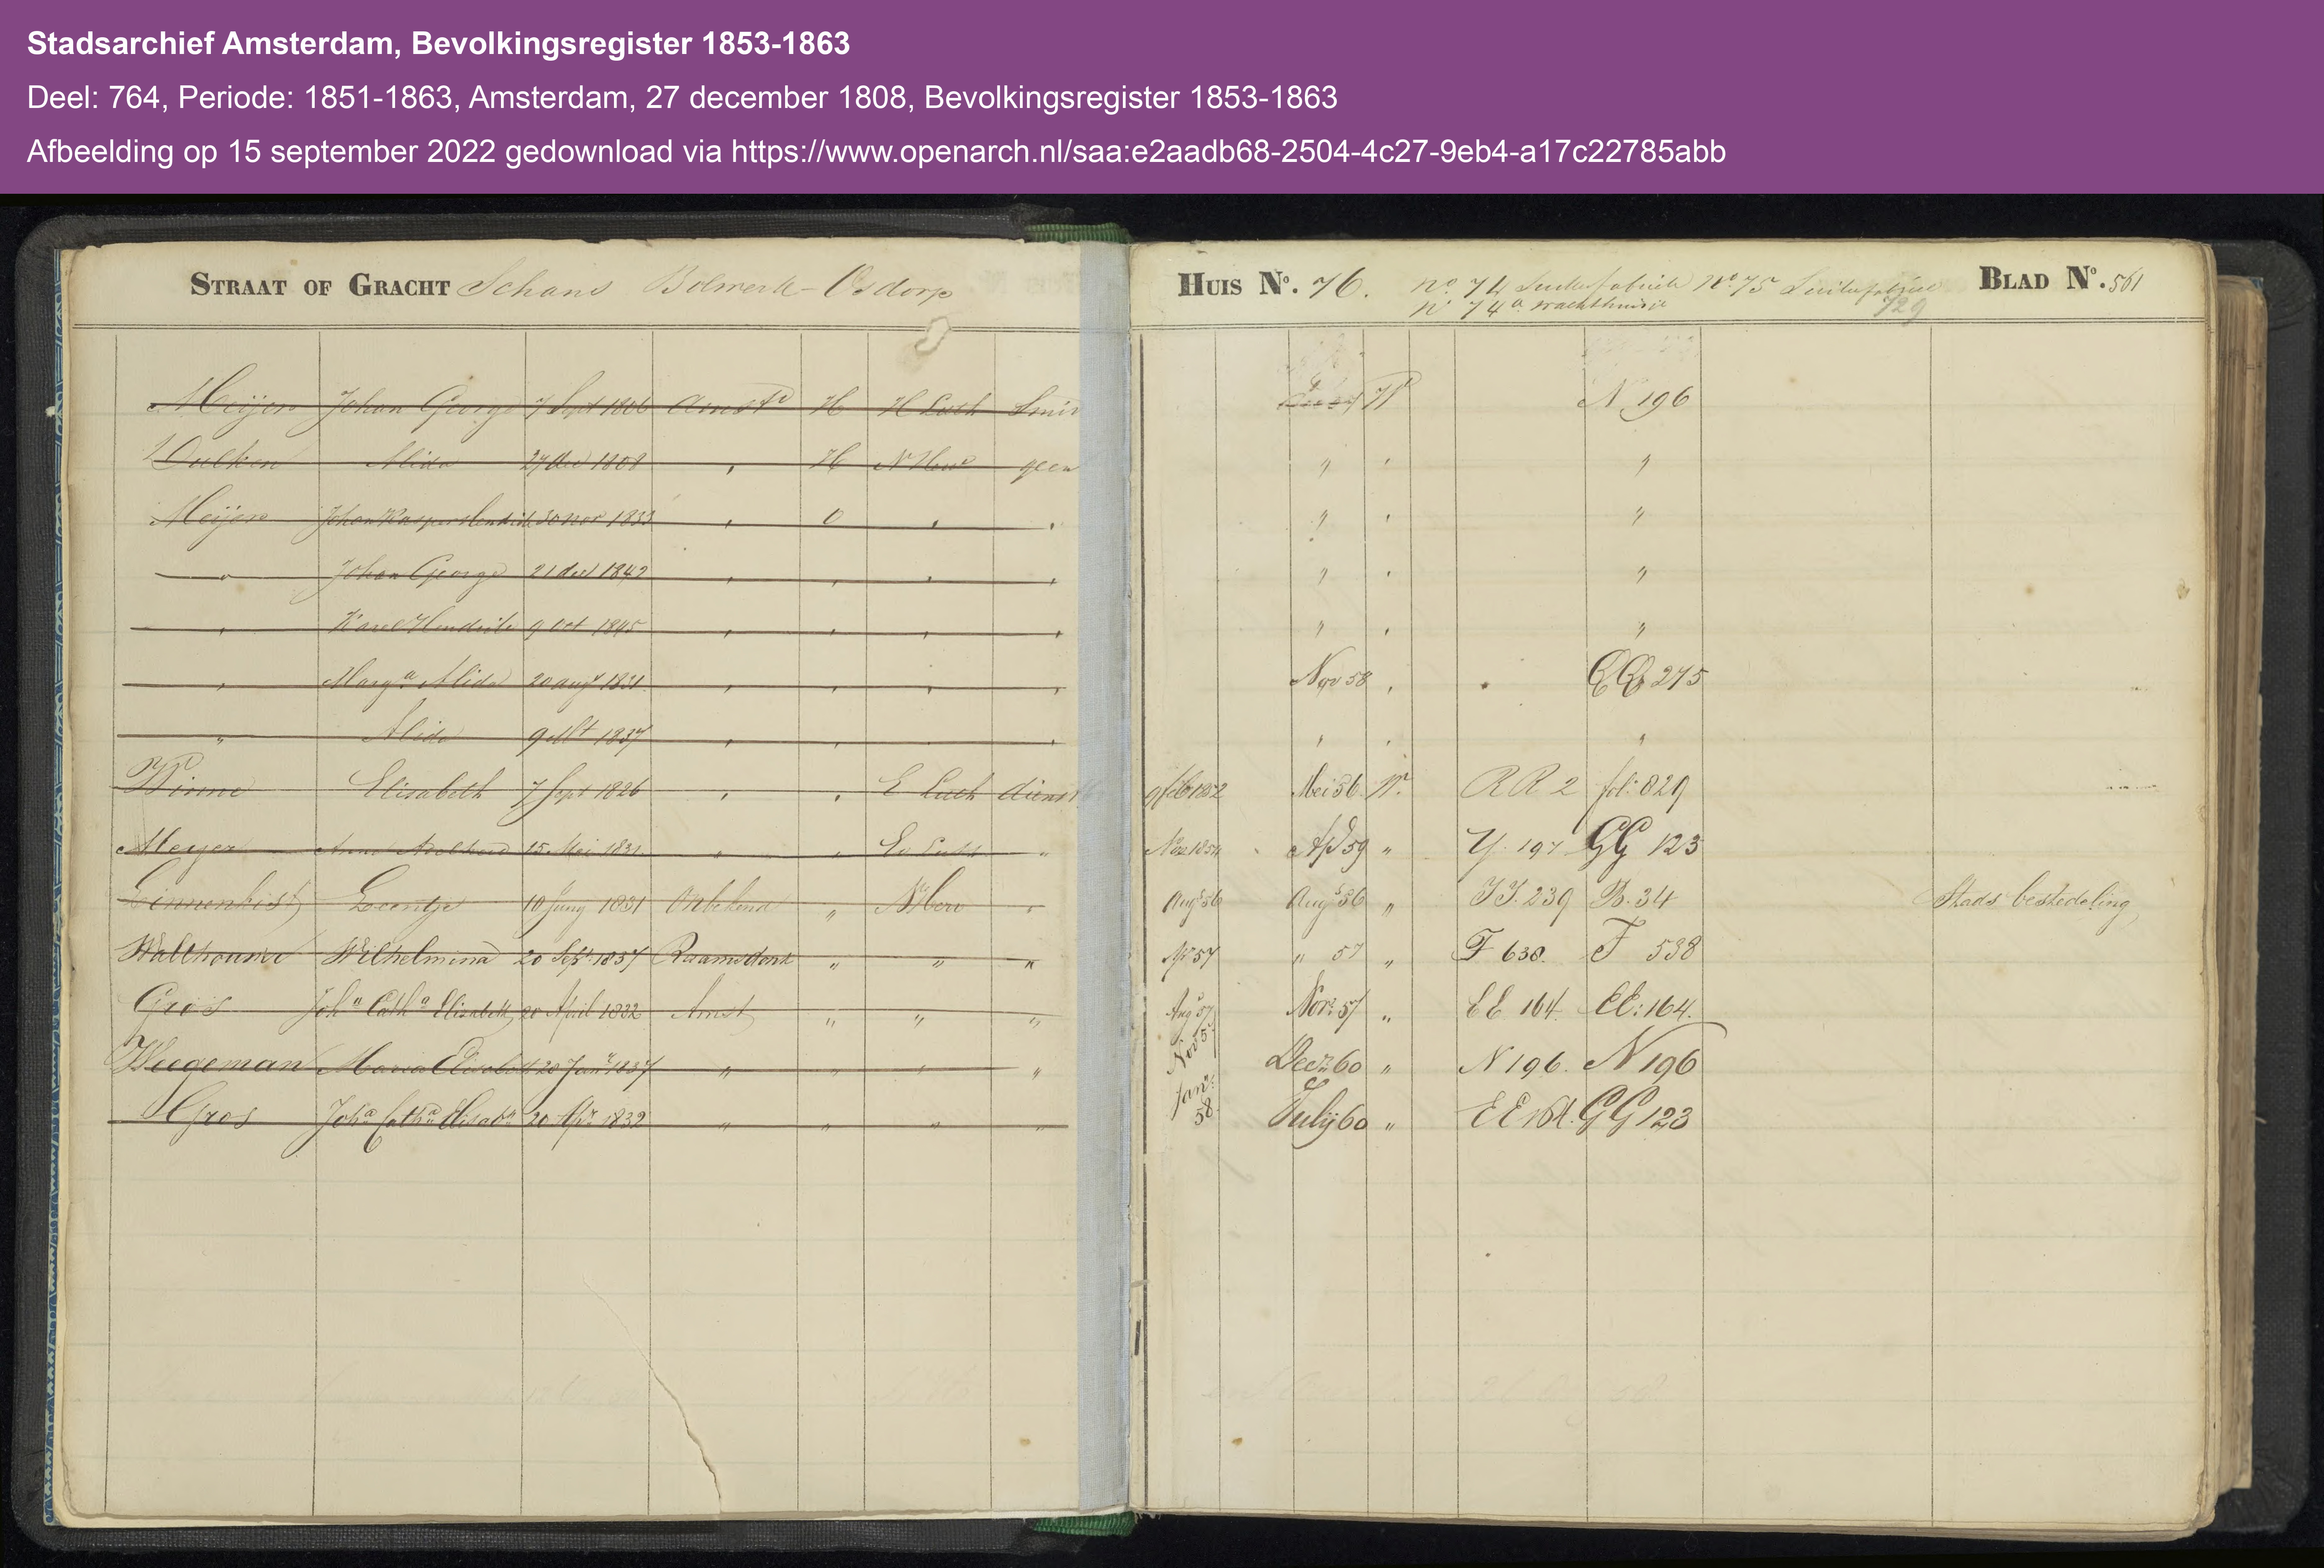 Stadsarchief Amsterdam, Bevolkingsregister 1853-1863
Deel: 764, Periode: 1851-1863, Amsterdam, 27 december 1808, Bevolkingsregister 1853-1863
Afbeelding op 15 september 2022 gedownload via https://www.openarch.nl/saa:e2aadb68-2504-4c27-9eb4-a17c22785abb
STRAAT OF GRACHT Schans Bolwerk-Osdorp HUIS No. 76. no 74 no 75 BLAD No. 561
no 74a wachthuisie 729
Meijer Johan George 7 Sept 1806 Amstd H H Luth N 196
Alida 27 dec 1808 „ H N Herv geen „ „ „
Meijer Johan 30 nov 1833 „ O „ „ „ „ „
„ Johan George 21 dec 1842 „ „ „ „ „ „ „
„ Karel Hendrik 9 oct 1845 „ „ „ „ „ „ „
„ Marga Alida 20 augt 1831 „ „ „ „ Nov 58 „ 275
„ Alida 9 1837 „ „ „ „ „ „ „
Winne Elisabeth 7 Sept 1826 „ „ E Luth dienst 1852 Mei 56 W. RR 2 fol: 829
Meyer 15 Mei 1831 „ „ Ev Luth „ Nov 1854 Apl 59 „ Y. 197 GG 123
Leentje 10 Juny 1831 Onbekend „ N Herv „ Augs 56 Augs 56 „ 239 B. 34 Stads bestedeling
Wilhelmina 20 Sept. 1837 Raamsdonk „ „ „ 57 „ 57 „ F 638. F 538
Gros Joha Catha Elisabeth 20 April 1832 Amst „ „ „ Aug 57 Nov: 57 „ EE 164 EE: 164.
Wegeman Maria Elisabeth 20 Janu 1837 „ „ „ „ Nov 57 Decr 60 „ N 196. N 196
Gros Joha Catha Elisabth 20 Apr 1832 „ „ „ „ Jan: 58 July 60 „ EE 164. GG 123